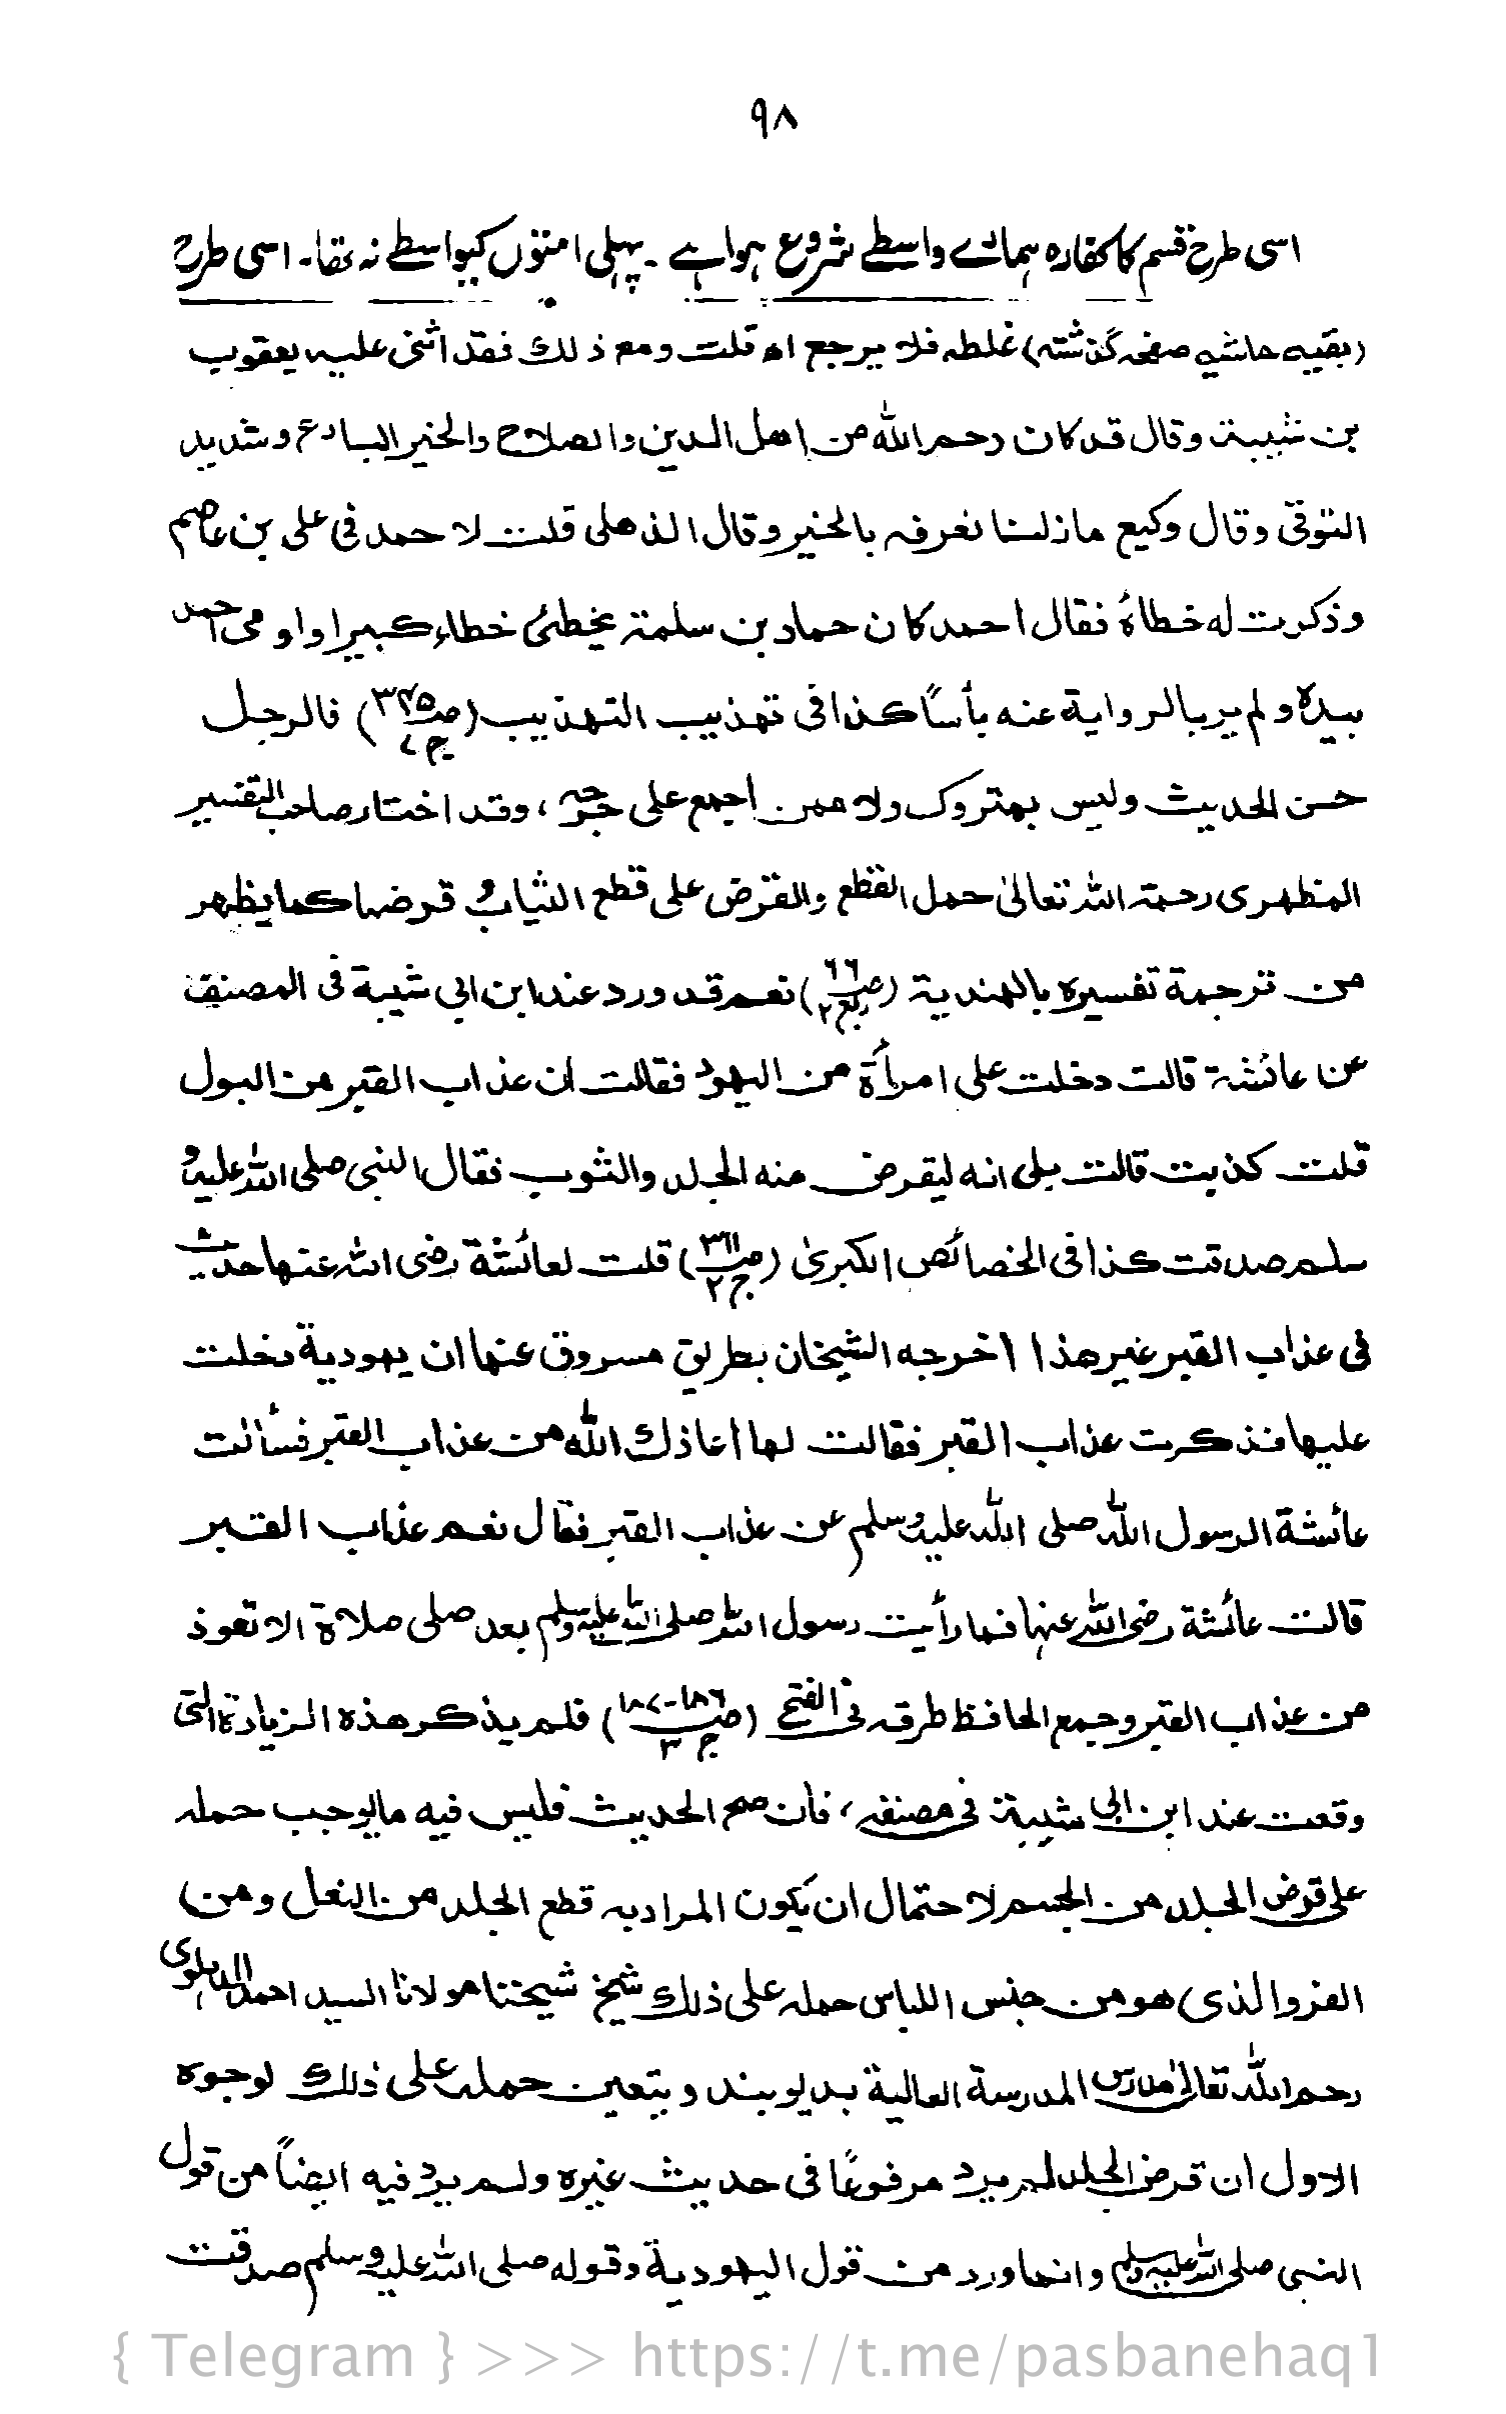 ۹۸
اسی طرح قسم کا کفارہ ہمارے واسطے شروع ہوا ہے ۔ پہلی امتوں کیواسطے نہ تھا۔ اسی طرح
(بقیہ حاشیہ صفحہ گذشتہ) غلطه فلا یرجع اه قلت ومع ذلك فقد اثنی علیه یعقوب
بن شیبة وقال قد کان رحمه الله من اهل الدین والصلاح والخیر البارع وشدید
التوقی وقال وکیع مازلنا نعرفه بالخیر وقال الذهلی قلت لاحمد فی علی بن عاصم
وذکرت له خطأہ فقال احمد کان حماد بن سلمة یخطئ خطاء کبیرا واومی احمد
بیدہ ولم یر بالروایة عنه بأساً کذا فی تهذیب التهذیب (ص۳۴۵ ج۷) فالرجل
حسن الحدیث ولیس بمتروک ولا ممن اجمع علی جرحه، وقد اختار صاحب التفسیر
المظهری رحمة الله تعالیٰ حمل القطع والقرض علی قطع الثیاب وقرضها کما یظهر
من ترجمة تفسیرہ بالهندیة (ص۶۶ ربع۲) نعم قد ورد عند ابن ابی شیبة فی المصنف
عن عائشة قالت دخلت علی امرأة من الیهود فقالت ان عذاب القبر من البول
قلت کذبت قالت بلی انه لیقرض منه الجلد والثوب فقال النبی صلی الله علیه و
سلم صدقت کذا فی الخصائص الکبریٰ (ص۳۶۱ ج۲) قلت لعائشة رضی الله عنها حدیث
فی عذاب القبر غیر هذا اخرجه الشیخان بطریق مسروق عنها ان یهودیة دخلت
علیها فذکرت عذاب القبر فقالت لها أعاذك الله من عذاب القبر فسألت
عائشة الرسول الله صلی الله علیه وسلم عن عذاب القبر فقال نعم عذاب القبر
قالت عائشة رضی الله عنها فما رأیت رسول الله صلی الله علیه وسلم بعد صلی صلاة الا تعوذ
من عذاب القبر وجمع الحافظ طرقه فی الفتح (ص۱۸۶-۱۸۷ ج۳) فلم یذکر هذه الزیادة التی
وقعت عند ابن ابی شیبة فی مصنفه، فأن صح الحدیث فلیس فیه ما یوجب حمله
علی قرض الجلد من الجسم لاحتمال ان یکون المراد به قطع الجلد من النعل ومن
الفرو الذی هو من جنس اللباس حمله علی ذلك شیخ شیخنا مولانا السید احمد الدہلوی
رحمه الله تعالیٰ مدرس المدرسة العالیة بدیوبند ویتعین حمله علی ذلك لوجوہ
الاول ان قرض الجلد لم یرد مرفوعًا فی حدیث غیرہ ولم یرد فیه ایضاً من قول
النبی صلی الله علیه وسلم وانما ورد من قول الیهودیة وقوله صلی الله علیه وسلم صدقت
{ Telegram } >>> https://t.me/pasbanehaq1